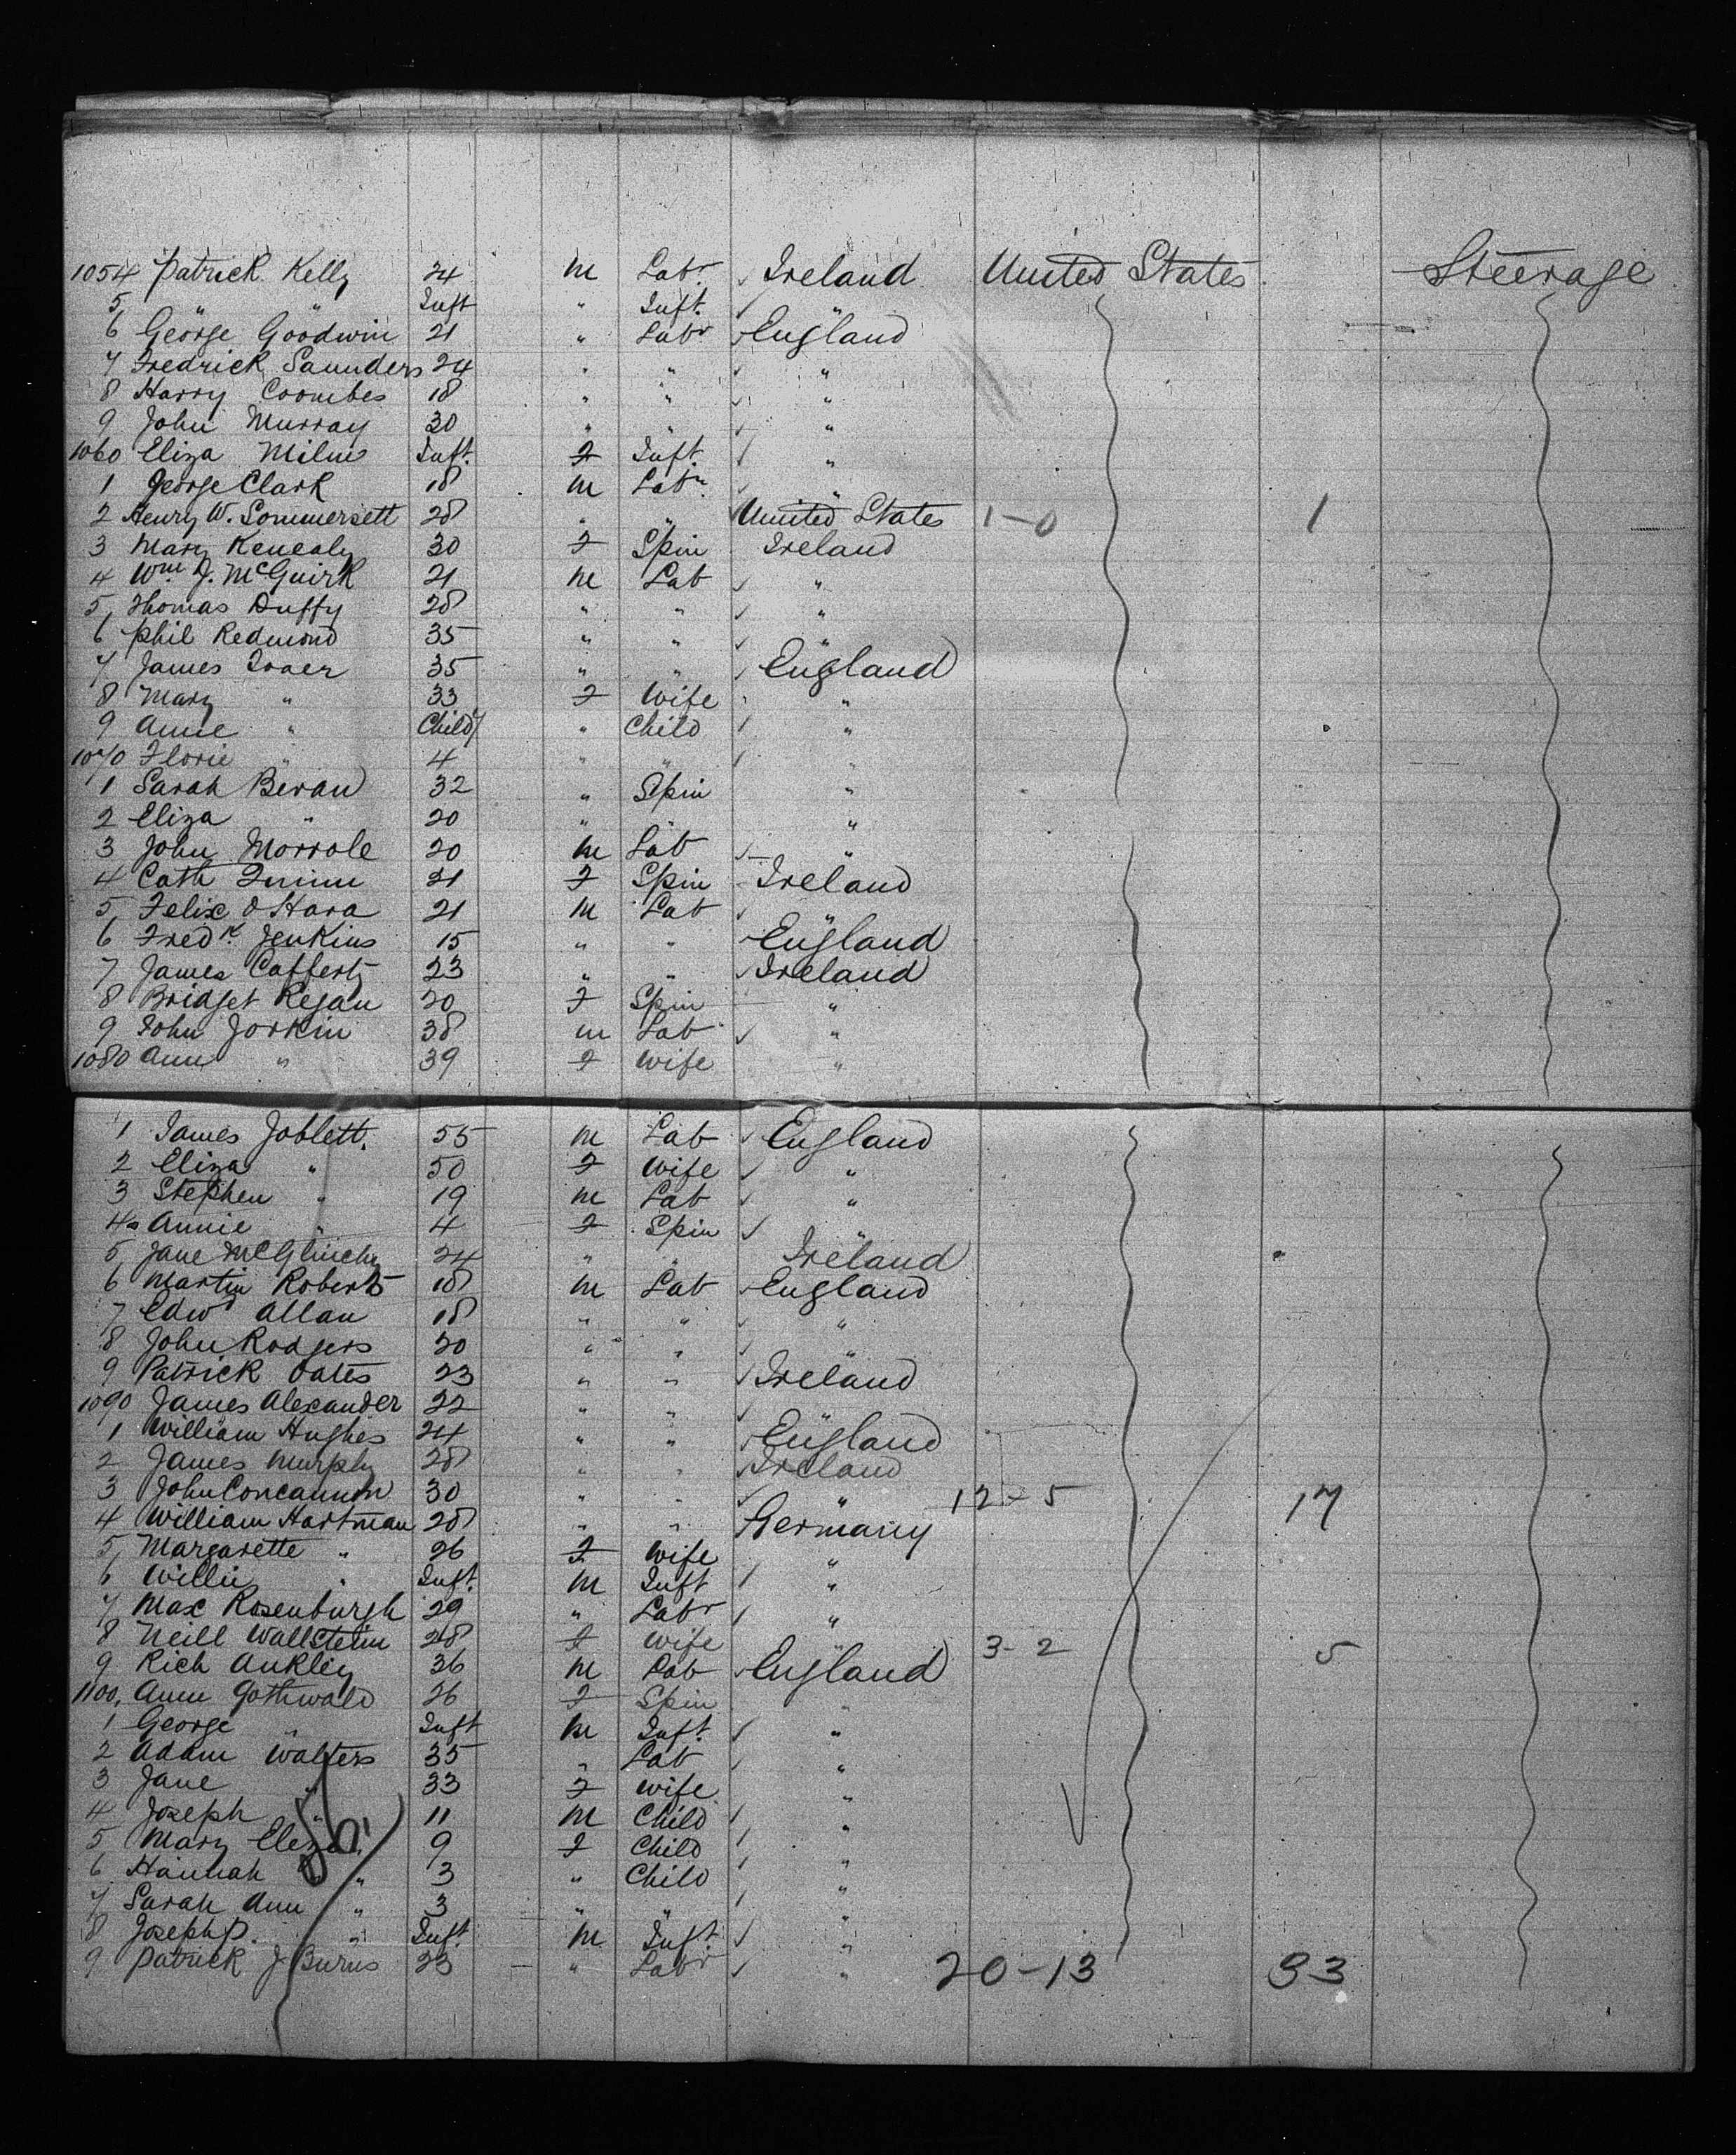 1054 Patrick Kelly 24 m Labr Ireland United States Steerage
5 " " Inft " Inft.
6 George Goodwin 21 " Labr England
7 Fredrick Saunders 24 " " "
8 Harry Coombes 18 " " "
9 John Murray 30 " " "
1060 Eliza Milns Inft. F Inft "
1 George Clark 18 m Labr "
2 Henry W. Sommersett 28 " " United States 1-0 1
3 Mary Kenealy 30 F Spin Ireland
4 Wm J. McGuirk 21 m Lab "
5 Thomas Duffy 28 " " "
6 Phil Redmond 35 " " "
7 James 35 " " England
8 Mary " 33 F Wife "
9 Annie " Child " Child "
1070 Florie " 4 " " "
1 Sarah Bevan 32 " Spin "
2 Eliza " 20 " " "
3 John 20 m Lab "
4 Cath Quinn 21 F Spin Ireland
5 Felix O Hara 21 m Lab "
6 Fredk. Jenkins 15 " " England
7 James Cafferty 23 " " Ireland
8 Bridget Regan 20 F Spin "
9 John Jorkin 38 m Lab "
1080 Ann " 39 F Wife "
1 James Joblett. 55 m Lab England
2 Eliza " 50 F Wife "
3 Stephen " 19 m Lab "
4 Annie " 4 F Spin "
5 Jane McGlinchy 24 " " Ireland
6 Martin Roberts 18 m Lab England
7 Edwd Allan 18 " " "
8 John Rodgers 20 " " "
9 Patrick Oates 23 " " Ireland
1090 James Alexander 22 " " "
1 William Hughes 24 " " England
2 James Murphy 28 " " Ireland
3 John Concannon 30 " " " 12-5 17
4 William Hartman 28 " " Germany
5 Margarette " 26 F Wife "
6 Willie " Inft. m Inft "
7 Max Rosenburgh 29 " Labr "
8 Neill Wallstein 28 F Wife 3-2 5
9 Rich Ankley 36 m Lab England
1100. Ann Gothwald 26 F Spin "
1 George " Inft m Inft. "
2 Adam Walters 35 " Lab "
3 Jane " 33 F Wife "
4 Joseph " 11 m Child "
5 Mary Eliza " 9 F Child "
6 Hannah " 3 " Child "
7 Sarah Ann " 3 " " "
8 Joseph P. " Inft. m Inft "
9 Patrick J Burns 23 " Labr " 20-13 33